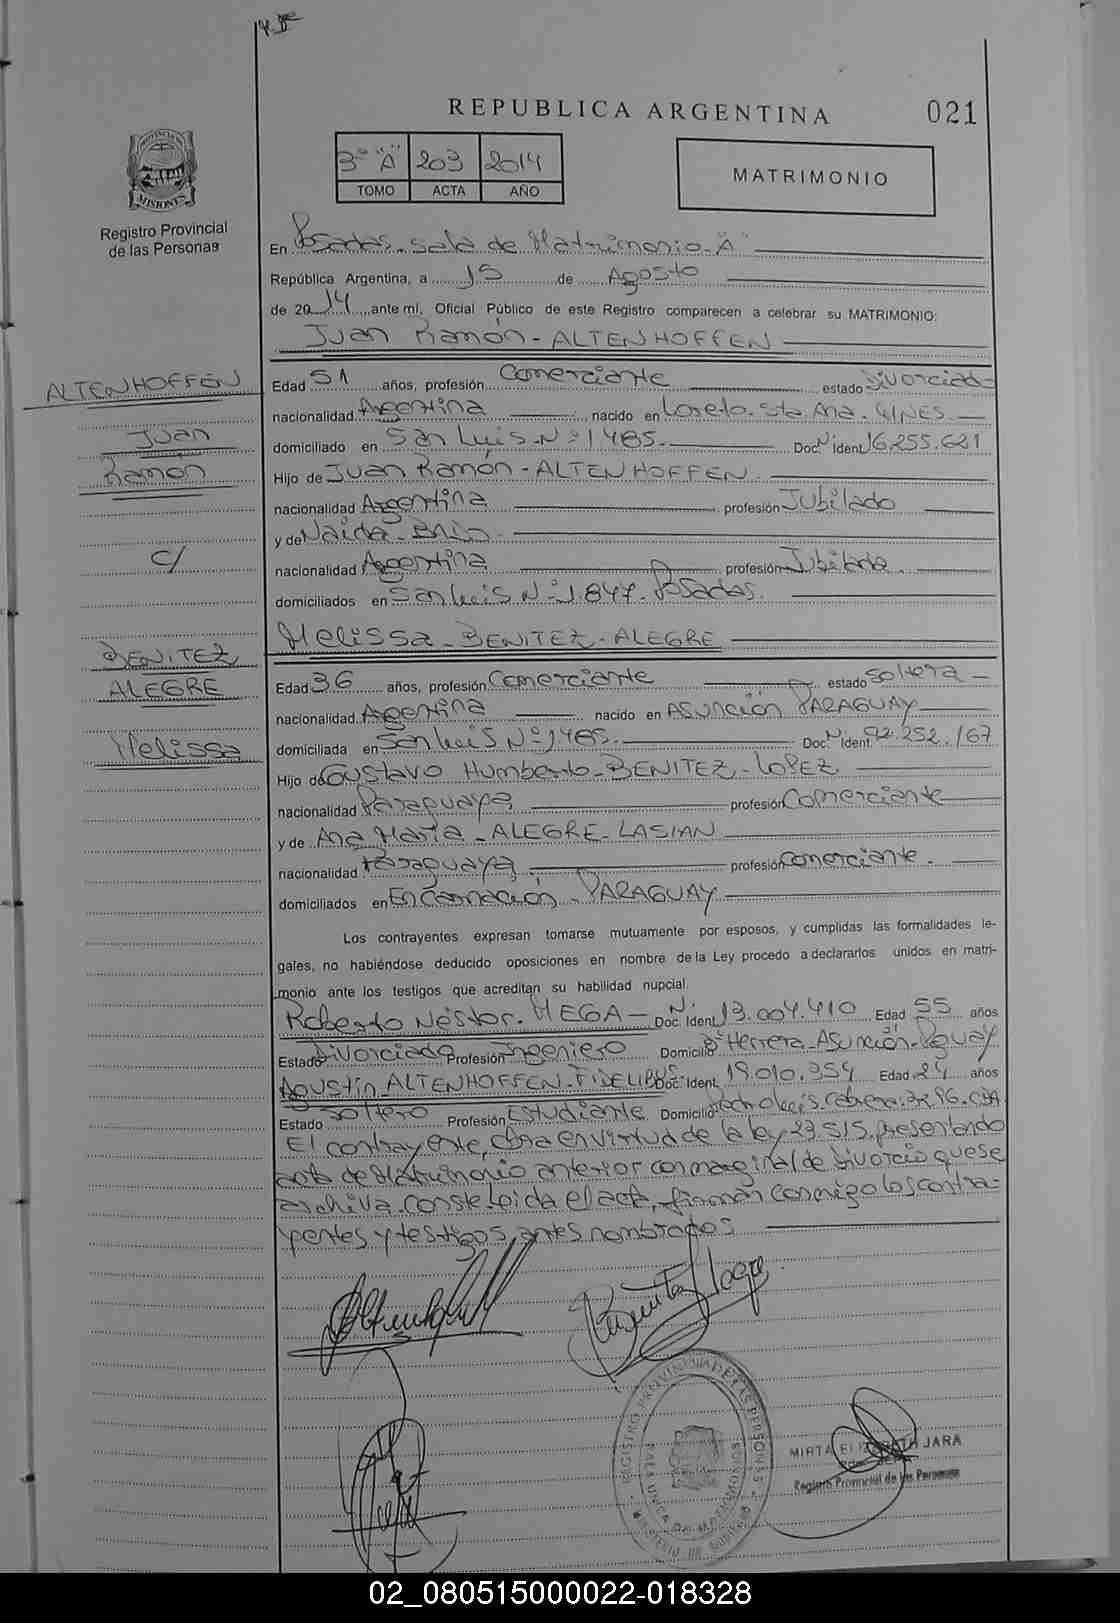 REPUBLICA ARGENTINA 021
PROVINCIA DE
MISIONES
Registro Provincial
de las Personas
3º "A" 203 2014
TOMO ACTA AÑO
MATRIMONIO
En Posadas. Sala de Matrimonio. "A"
República Argentina, a 15 de Agosto
de 2014 ante mí, Oficial Público de este Registro comparecen a celebrar su MATRIMONIO:
Juan Ramón - ALTENHOFFEN
ALTENHOFFEN
Juan
Ramón
C/
BENITEZ
ALEGRE
Melissa
Edad 51 años, profesión Comerciante estado Divorciado
nacionalidad Argentina nacido en Loreto. Sta. Ana.
domiciliado en San Luis. Nº 1485. Doc. Ident. Nº 16.255.621
Hijo de Juan Ramón - ALTENHOFFEN.
nacionalidad Argentina profesión Jubilado
y de Naida
nacionalidad Argentina profesión Jubilada.
domiciliados en San Luis Nº 1.847. Posadas.
Melissa - BENITEZ - ALEGRE
Edad 36 años, profesión Comerciante estado Soltera
nacionalidad Argentina nacido en Asunción PARAGUAY
domiciliada en San Luis Nº 1485. Doc. Ident. Nº 92.252.167
Hijo de Gustavo Humberto - BENITEZ - LOPEZ
nacionalidad Paraguaya profesión Comerciante
y de Ana María - ALEGRE - LASIAN
nacionalidad Paraguaya profesión Comerciante.
domiciliados en Encarnación. PARAGUAY
Los contrayentes expresan tomarse mutuamente por esposos, y cumplidas las formalidades le-
gales, no habiéndose deducido oposiciones en nombre de la Ley procedo a declararlos unidos en matri-
monio ante los testigos que acreditan su habilidad nupcial.
Roberto Néstor. MEGA Doc. Ident. Nº 13.004.410 Edad 55 años
Estado Divorciado Profesión Ingeniero Domicilio Herrera. Asunción. Pguay
Agustín ALTENHOFFEN - FIDELIBUS Doc. Ident. Nº 19.010.354 Edad 24 años
Estado Soltero Profesión Estudiante Domicilio Pedro Luis. Cabrera.
El contrayente, obra en virtud de la ley 23.515, presentando
acta de Matrimonio anterior con marginal de divorcio que se
archiva. Conste. Leida el acta, firman conmigo los contra-
yentes y testigos, antes nombrados.
REGISTRO PROVINCIAL DE LAS PERSONAS
SALA UNICA DE MATRIMONIOS
MINISTERIO DE GOBIERNO
MIRTA ELIZABETH JARA
Registro Provincial de las Personas
02_080515000022-018328